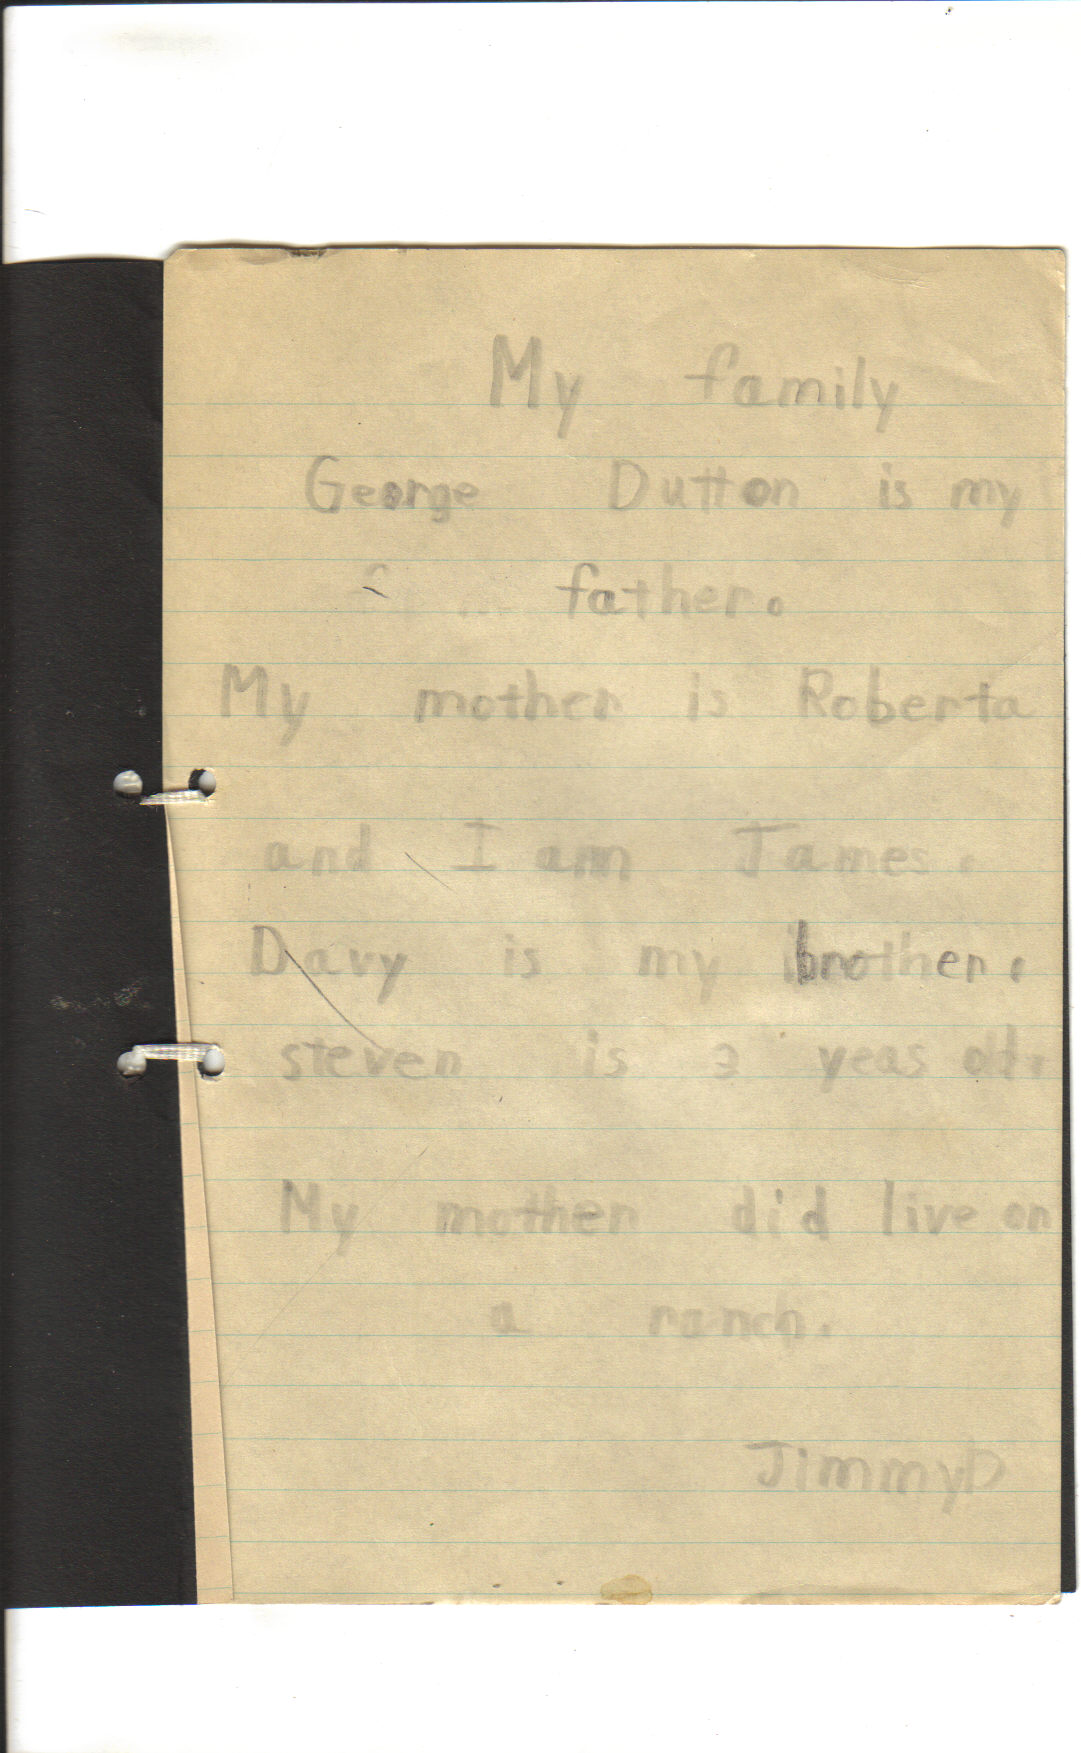 My family
George Dutton is my
father.
My mother is Roberta
and I am James.
Davy is my brother.
steven is 3 yeas old.
My mother did live on
a ranch.
JimmyD